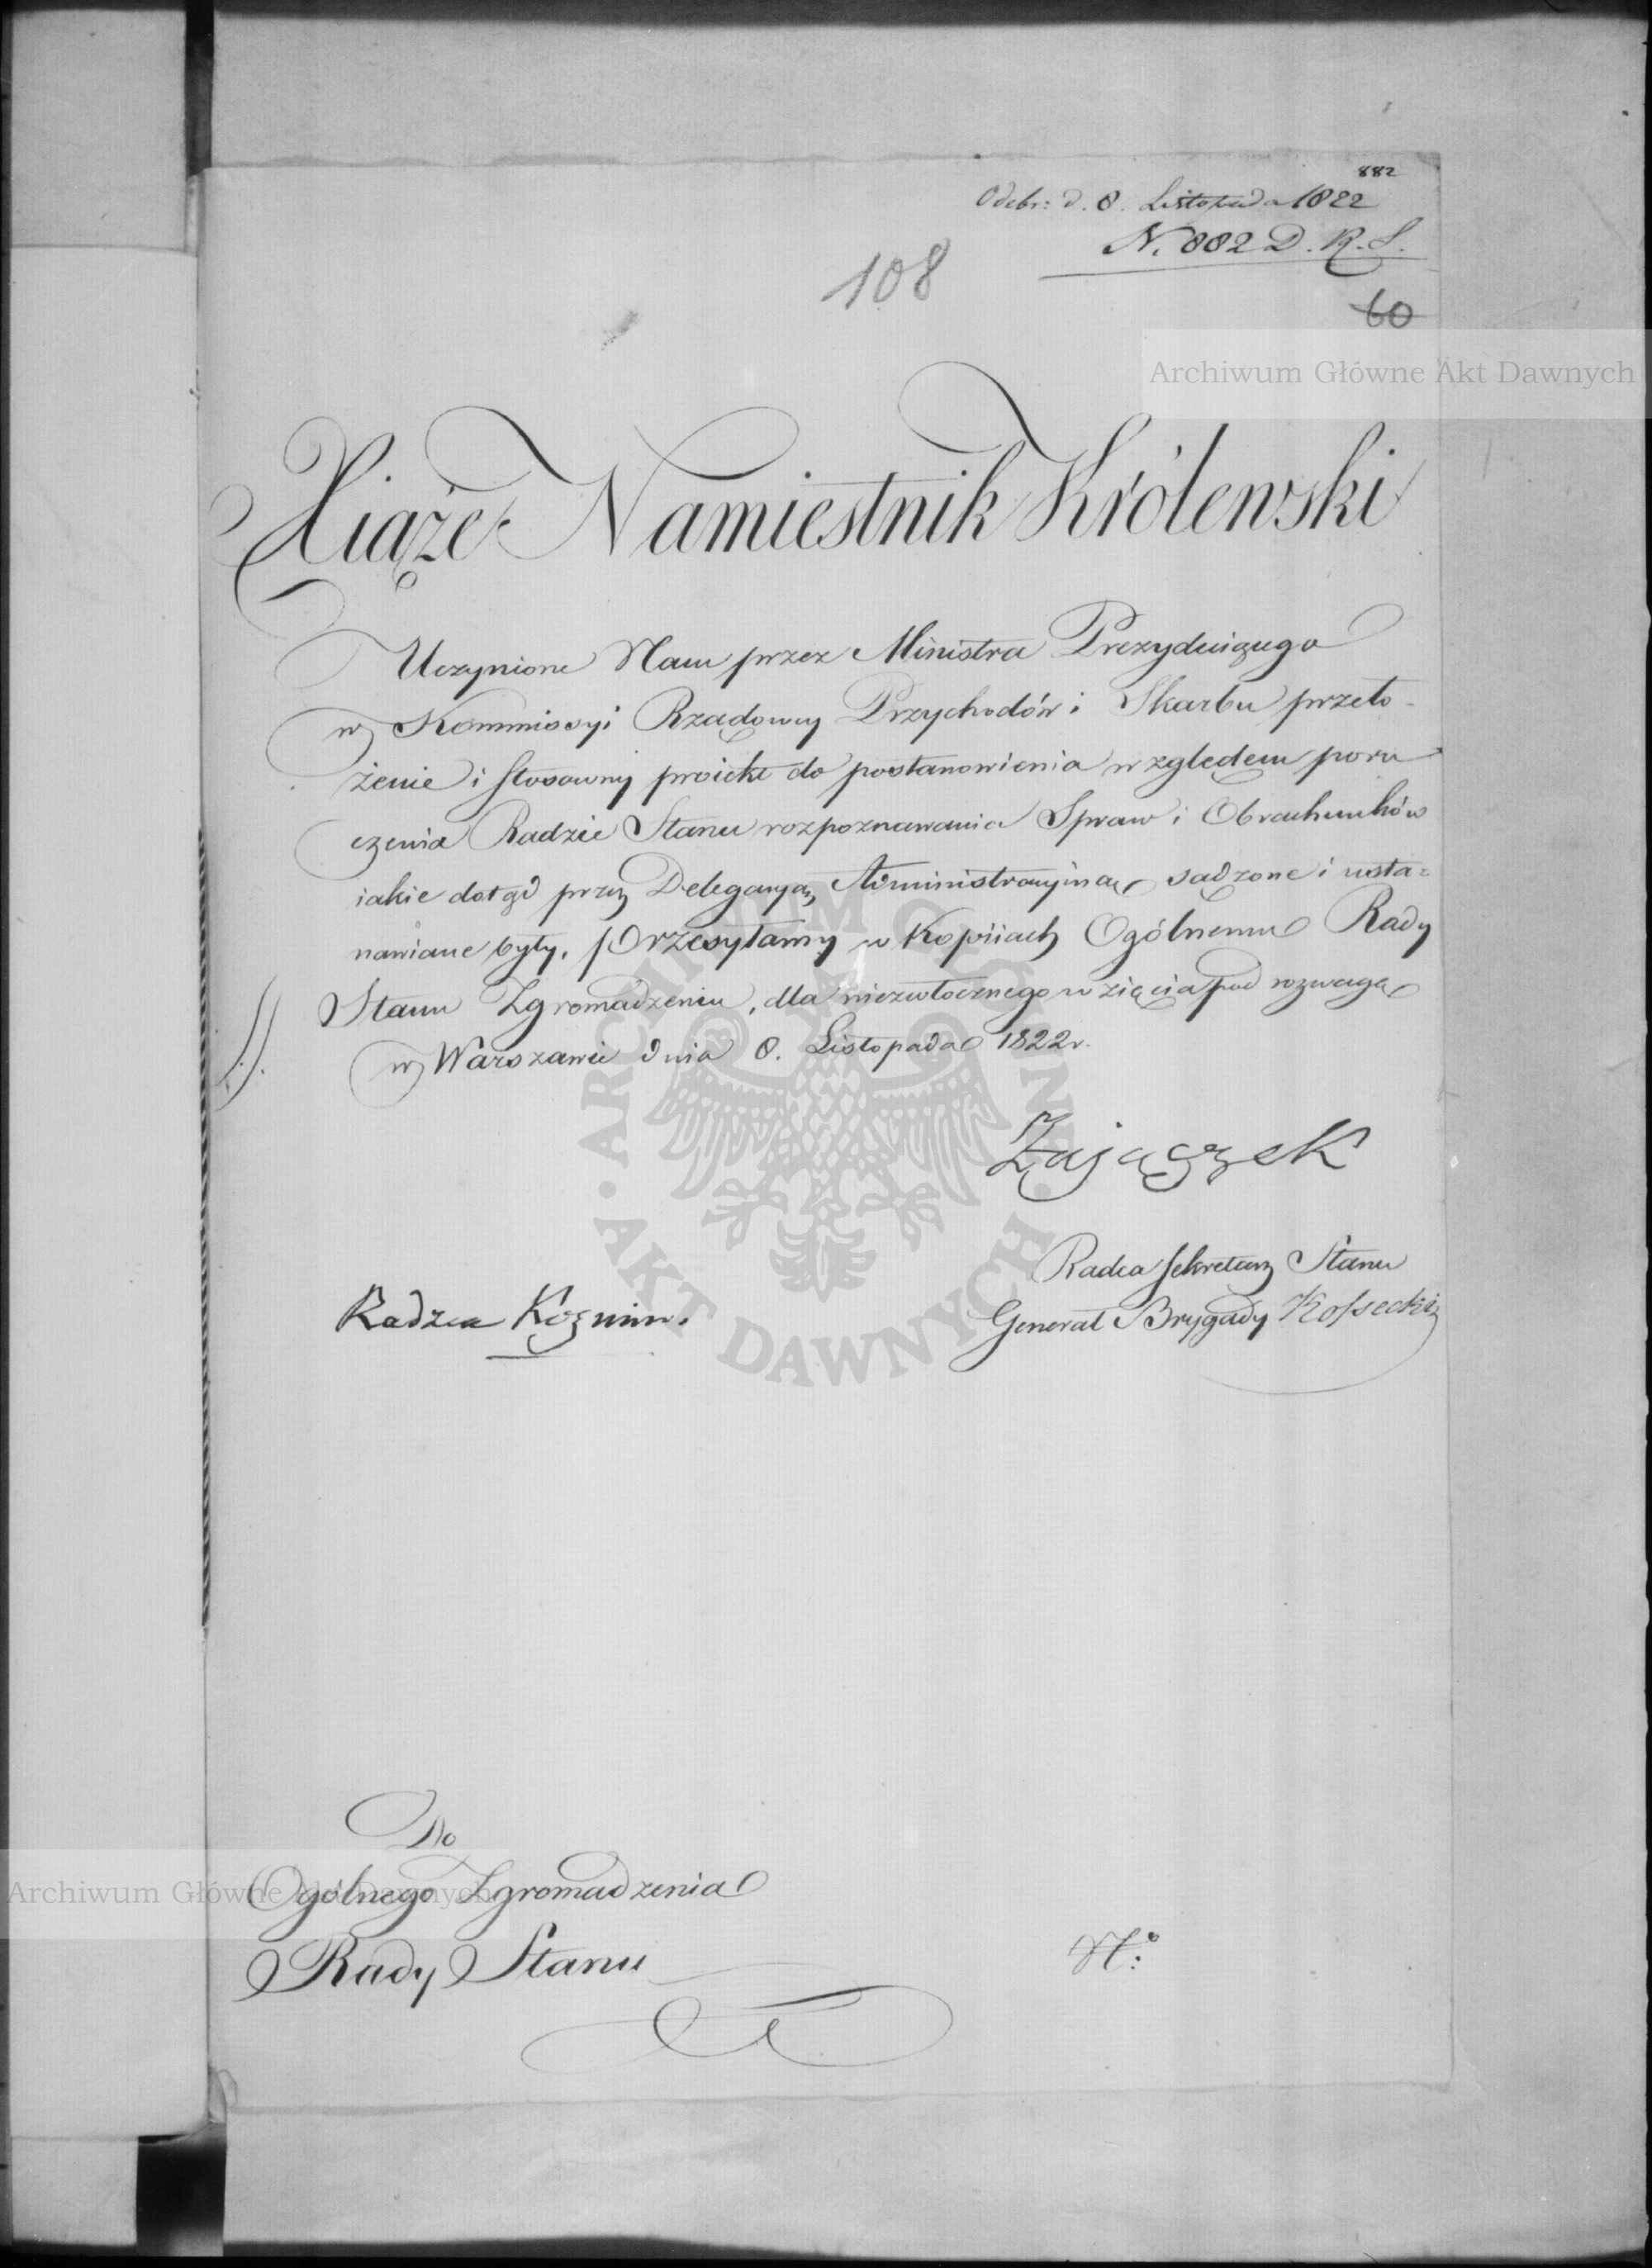 882
Odebr: d. 8. Listopada 1822
N. 882 D. R. S.
108
60
Archiwum Główne Akt Dawnych
Xiąże Namiestnik Królewski
Uczynione Nam przez Ministra Prezyduiącego
w Kommissyi Rządowey Przychodów i Skarbu przeło-
żenie i stosowny proiekt do postanowienia względem poru
czenia Radzie Stanu rozpoznawania Spraw i Obrachunków
iakie dotąd przez Delegacyą Administracyiną sądzone i usta=
nawiane były, przesyłamy w Kopiiach Ogólnemu Rady
Stanu Zgromadzeniu, dla niezwłocznego wzięcia pod rozwagę
w Warszawie dnia 8. Listopada 1822r.
Zajączek
Radca Sekretarz Stanu
Generał Brygady Kossecki
Radzca Koźmin.
ARCHIWUM GŁÓWNE AKT DAWNYCH
Do
Ogólnego Zgromadzenia
Archiwum Główne Akt Dawnych
Rady Stanu
N:o